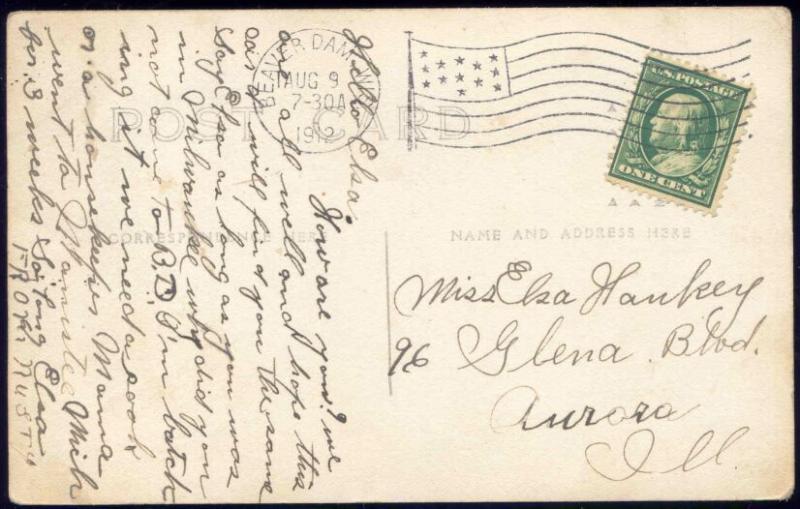 Hello Elsa,
How are you? we
are all well and hope this
card will find you the same
Say Elsa as long as you was
in Milwaukee why did you
not come to B.D I'm batch
ing it we need a cook
or a housekeeper Mama
went to Manistee Mich
for 3 weeks So long Elsa
FROM RUSTY
BEAVER DAM, WIS.
AUG 9
7-30A
1912
POST CARD
U.S. POSTAGE
ONE CENT
CORRESPONDENCE HERE
NAME AND ADDRESS HERE
Miss Elsa Hankey
96 Glena Blvd.
Aurora
Ill.